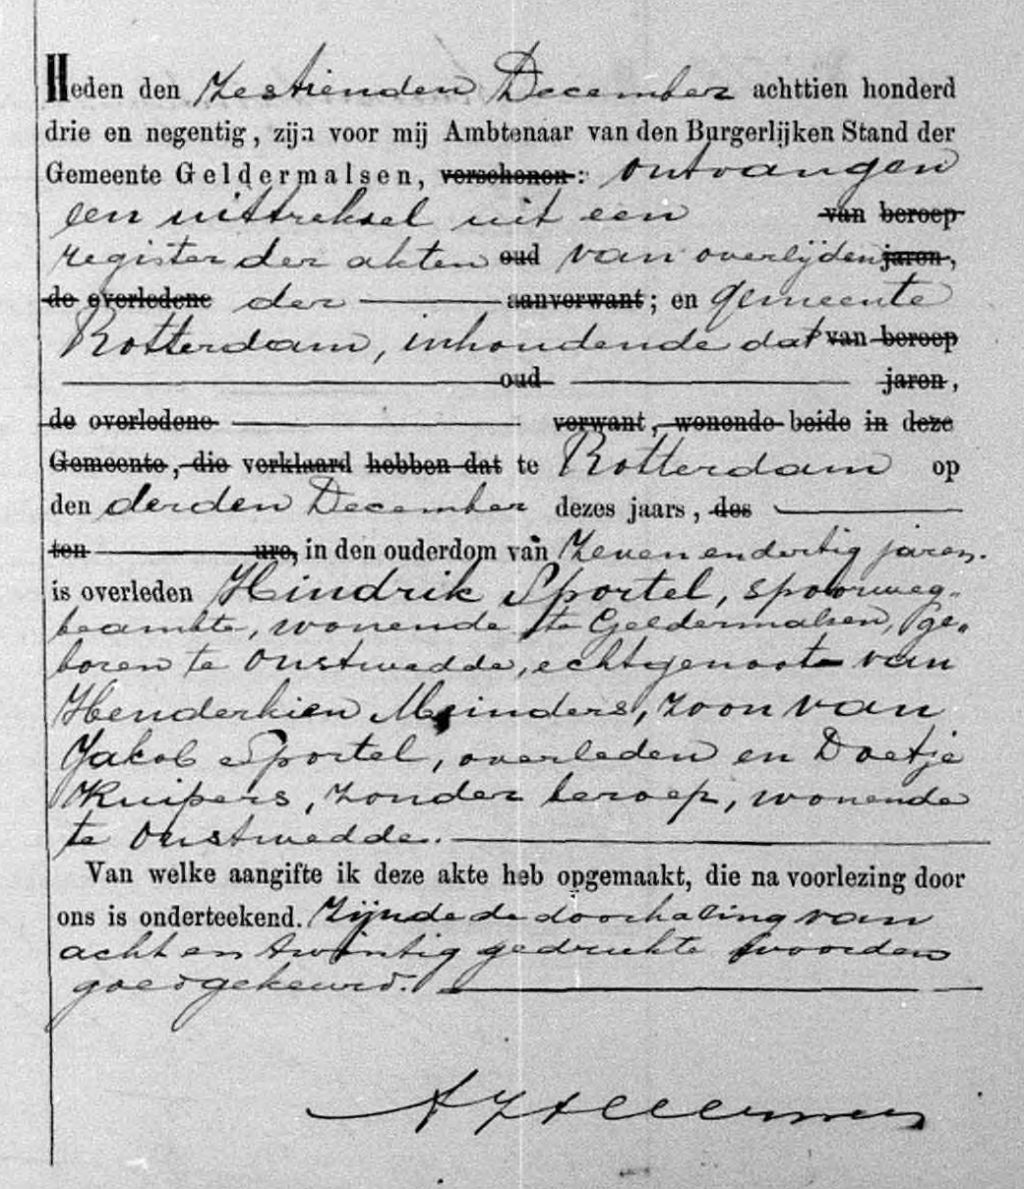 Heden den Zestienden December achttien honderd
drie en negentig, zijn voor mij Ambtenaar van den Burgerlijken Stand der
Gemeente Geldermalsen, verschenen: ontvangen
een uittreksel uit een van beroep
register der akten oud van overlijden jaren,
de overledene der aanverwant; en gemeente
Rotterdam, inhoudende dat van beroep
oud jaren,
de overledene verwant, wonende beide in deze
Gemeente, die verklaard hebben dat te Rotterdam op
den derden December dezes jaars, des
ten ure, in den ouderdom van Zeven en dertig jaren.
is overleden Hindrik Sportel, spoorweg-
beambte, wonende te Geldermalsen, ge-
boren te Onstwedde, echtgenoot van
Henderkien Meinders, zoon van
Jakob Sportel, overleden en Doetje
Kuipers, zonder beroep, wonende
te Onstwedde.
Van welke aangifte ik deze akte heb opgemaakt, die na voorlezing door
ons is onderteekend. Zijnde de doorhaling van
acht en twintig gedrukte woorden
goedgekeurd.